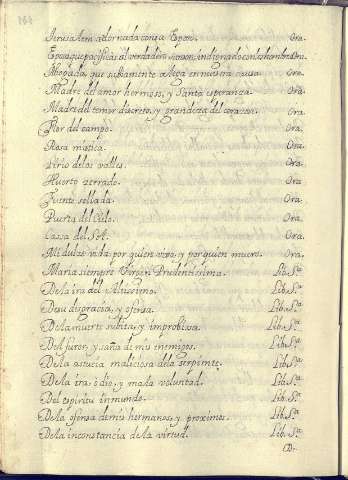 164
Jerusalem adornada con su Espos. Ora.
Esposa que pacificas al verdadero indignado con los hombres Ora.
Abogada, que sabiamente alega en nuestra causa. Ora.
Madre del amor hermoso, y Santa esperanza. Ora.
Madre del temor discreto, y grandeza del corazon. Ora.
Flor del campo. Ora.
Rosa mistica. Ora.
Lirio de los valles. Ora.
Huerto zerrado. Ora.
Fuente sellada. Ora.
Puerta del Cielo. Ora.
Cassa del Sol. Ora.
Mi dulce vida por quien vivo, y por quien muero. Ora.
Maria siempre Virgen Prudentissima. Lib. Sª
De la ira del Altissimo. Lib. Sª
De su disgracia, y ofensa. Lib. Sª
De la muerte subita, y improbissa. Lib. Sª
Del furor, y saña de mis enemigos. Lib. Sª
De la astucia maliciosa de la serpiente. Lib. Sª
De la ira, odio, y mala voluntad. Lib. Sª
Del espiritu inmundo. Lib. Sª
De la ofensa de mis hermanos, y proximos. Lib. Sª
De la inconstancia de la virtud. Lib. Sª